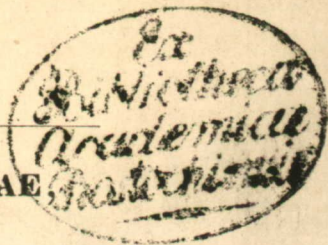 Ex
Bibliotheca
Academiae
AE Rostochiensis